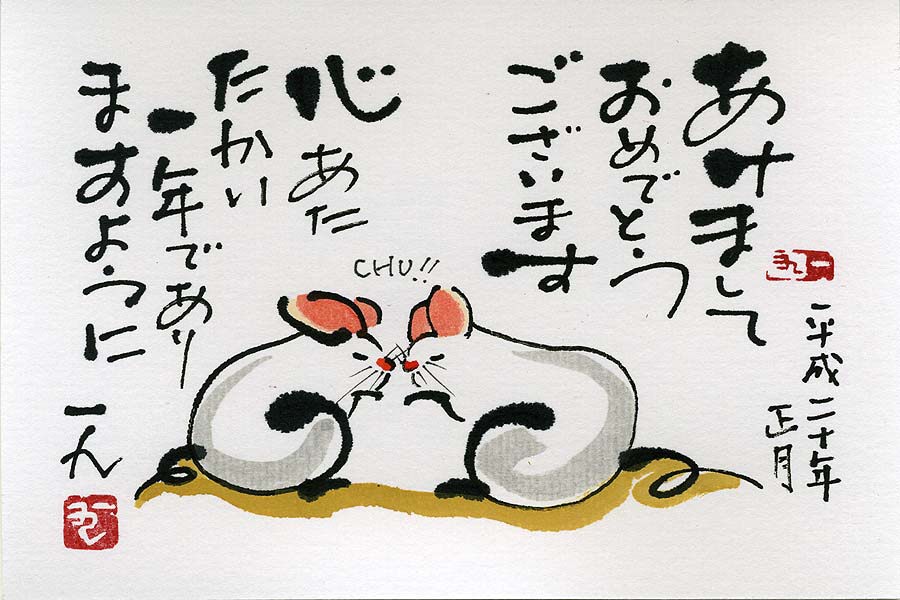 あけまして
おめでとう
ございます
平成二十年
正月
CHU!!
心あた
たかい
一年であり
ますように